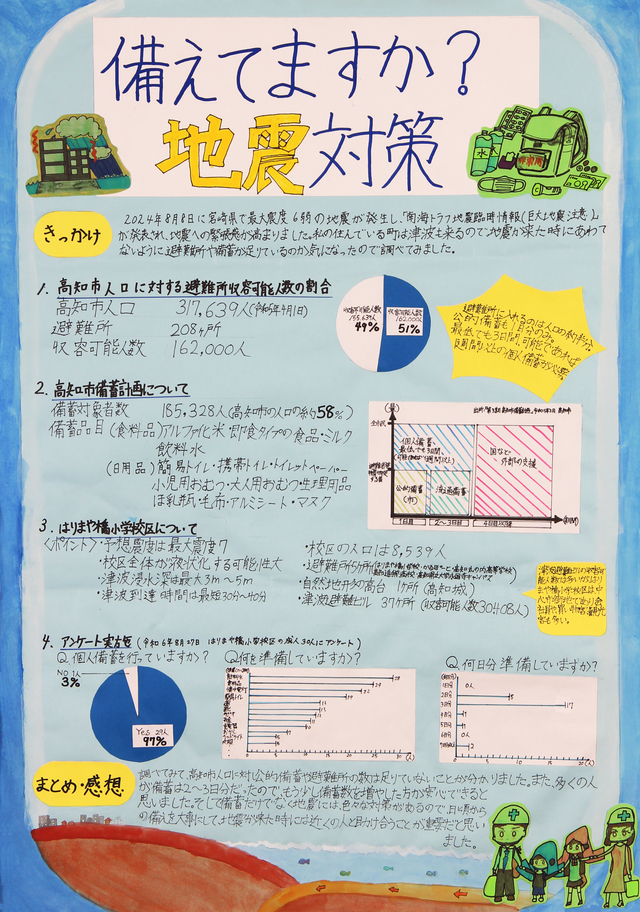 備えてますか？
地震対策
水
きっかけ
2024年8月8日に宮崎県で最大震度6弱の地震が発生し、「南海トラフ地震臨時情報(巨大地震注意)」
が発表され、地震への緊張感が高まりました。私の住んでいる町は津波も来るので地震が来た時にあわて
ないように避難所や備蓄が足りているのか気になったので調べてみました。
1. 高知市人口に対する避難所収容可能人数の割合
高知市人口 317,639人(令和5年4月1日)
避難所 208ヶ所
収容可能人数 162,000人
49%
収容可能人数
162,000人
51%
避難所に入れるのは人口の約半分。
公的備蓄も1日分のみ。
最低でも3日間、可能であれば
1週間以上の個人備蓄が必要。
2. 高知市備蓄計画について
備蓄対象者数 185,328人(高知市の人口の約58%)
備蓄品目(食料品)アルファ化米・即食タイプの食品・ミルク
飲料水
(日用品)簡易トイレ・携帯トイレ・トイレットペーパー
小児用おむつ・大人用おむつ・生理用品
ほ乳瓶・毛布・アルミシート・マスク
(量)
個人備蓄
最低でも3日間、
(可能であれば1週間以上)
国など
外部の支援
公的備蓄
(市)
流通備蓄
1日目 2～3日目 4日目以降
(期間)
3. はりまや橋小学校区について
〈ポイント〉・予想震度は最大震度7
・校区全体が液状化する可能性大
・津波浸水深は最大3m～5m
・津波到達時間は最短30分～40分
・校区の人口は8,539人
・避難所5ヶ所
・自然地形の高台 1ヶ所(高知城)
・津波避難ビル 37ヶ所(収容可能人数30408人)
4. アンケート実施(令和6年8月27日 はりまや橋小学校区の成人30人にアンケート)
Q.個人備蓄を行っていますか？
NO 1人
3%
Yes 29人
97%
Q.何を準備していますか？
Q.何日分準備していますか？
1日分 0人
2日分 8
3日分 17
まとめ・感想
調べてみて、高知市人口に対し公的備蓄や避難所の数は足りていないことが分かりました。また、多くの人
が備蓄は2～3日分だったので、もう少し備蓄数を増やした方が安心できると
思いました。そして備蓄だけでなく地震には、色々な対策があるので、日頃から
の備えを大事にして、地震が来た時には近くの人と助け合うことが重要だと思い
ました。